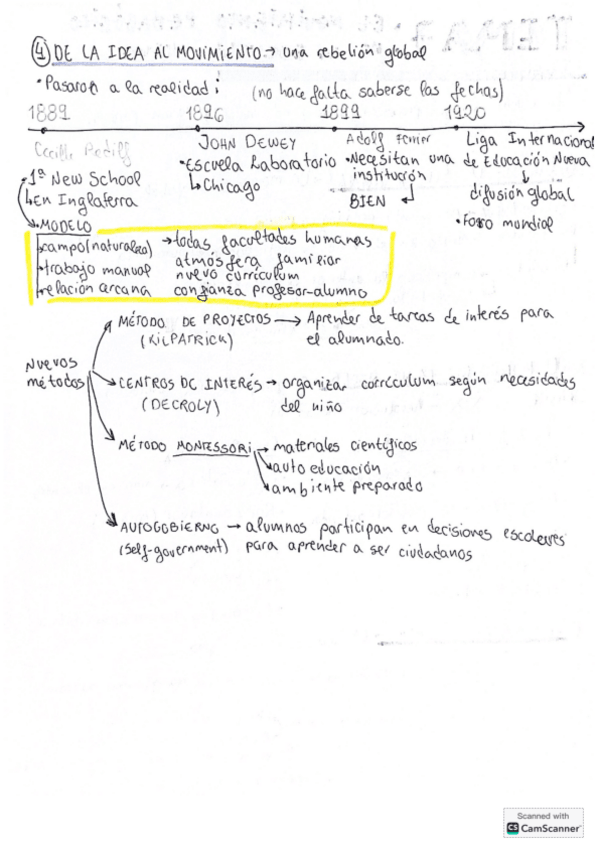 ④ DE LA IDEA AL MOVIMIENTO → una rebelión global
• Pasaron a la realidad: (no hace falta saberse las fechas)
1889 1896 1899 1920
Cecille JOHN DEWEY Adolf Liga Internacional
• 1ª New School • Escuela Laboratorio • Necesitan una de Educación Nueva
↳ En Inglaterra ↳ Chicago institución difusión global
BIEN • Foro mundial
• MODELO
campo (naturaleza) → todas facultades humanas
• trabajo manual atmósfera familiar
nuevo currículum
relación arcana confianza profesor-alumno
Nuevos métodos
MÉTODO DE PROYECTOS → Aprender de tareas de interés para
(KILPATRICK) el alumnado.
• CENTROS DC INTERÉS → organizar currículum según necesidades
(DECROLY) del niño
MÉTODO MONTESSORI → materiales científicos
auto educación
ambiente preparado
AUTOGOBIERNO → alumnos participan en decisiones escolares
(self-government) para aprender a ser ciudadanos
Scanned with
CS CamScanner